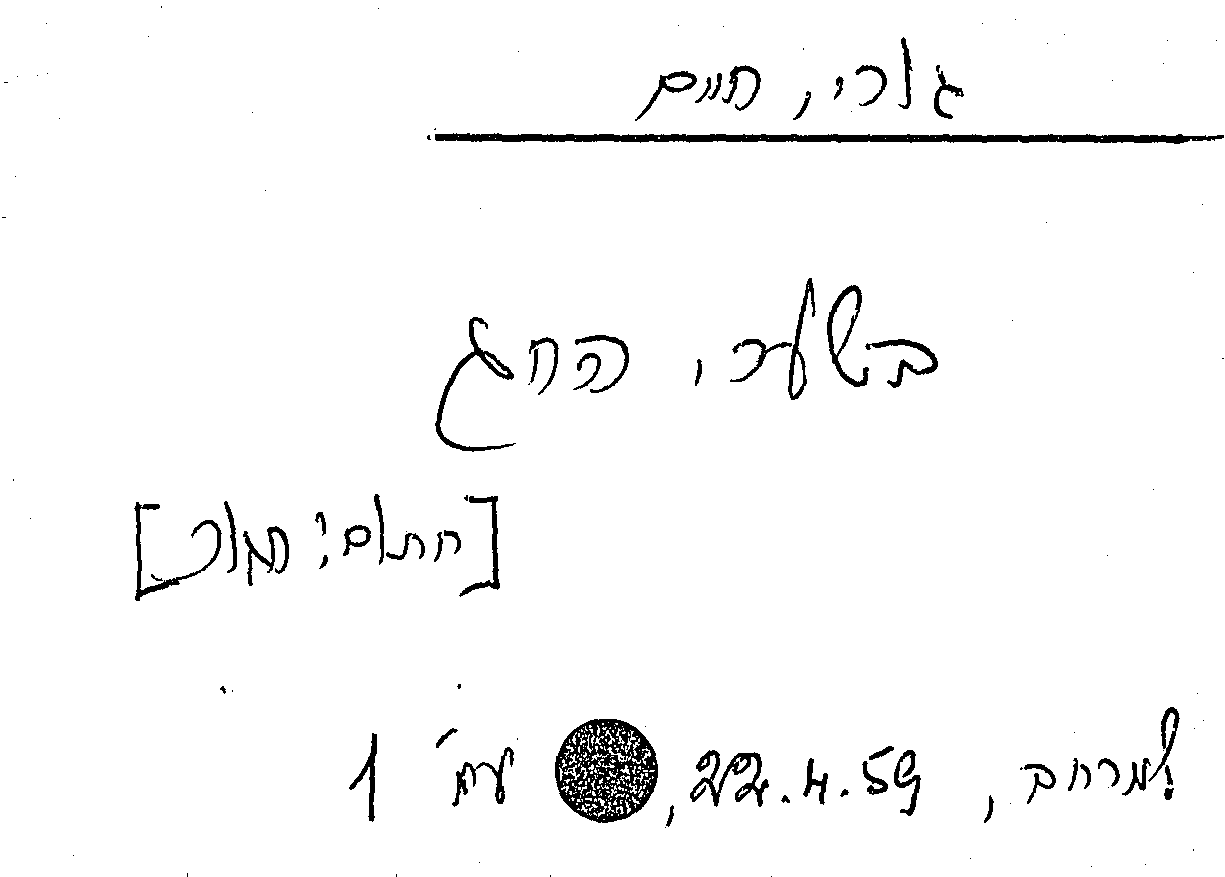 גורי, חיים
בשערי, החג
[חתום:
למרחב, 22.4.59, עמ' 1